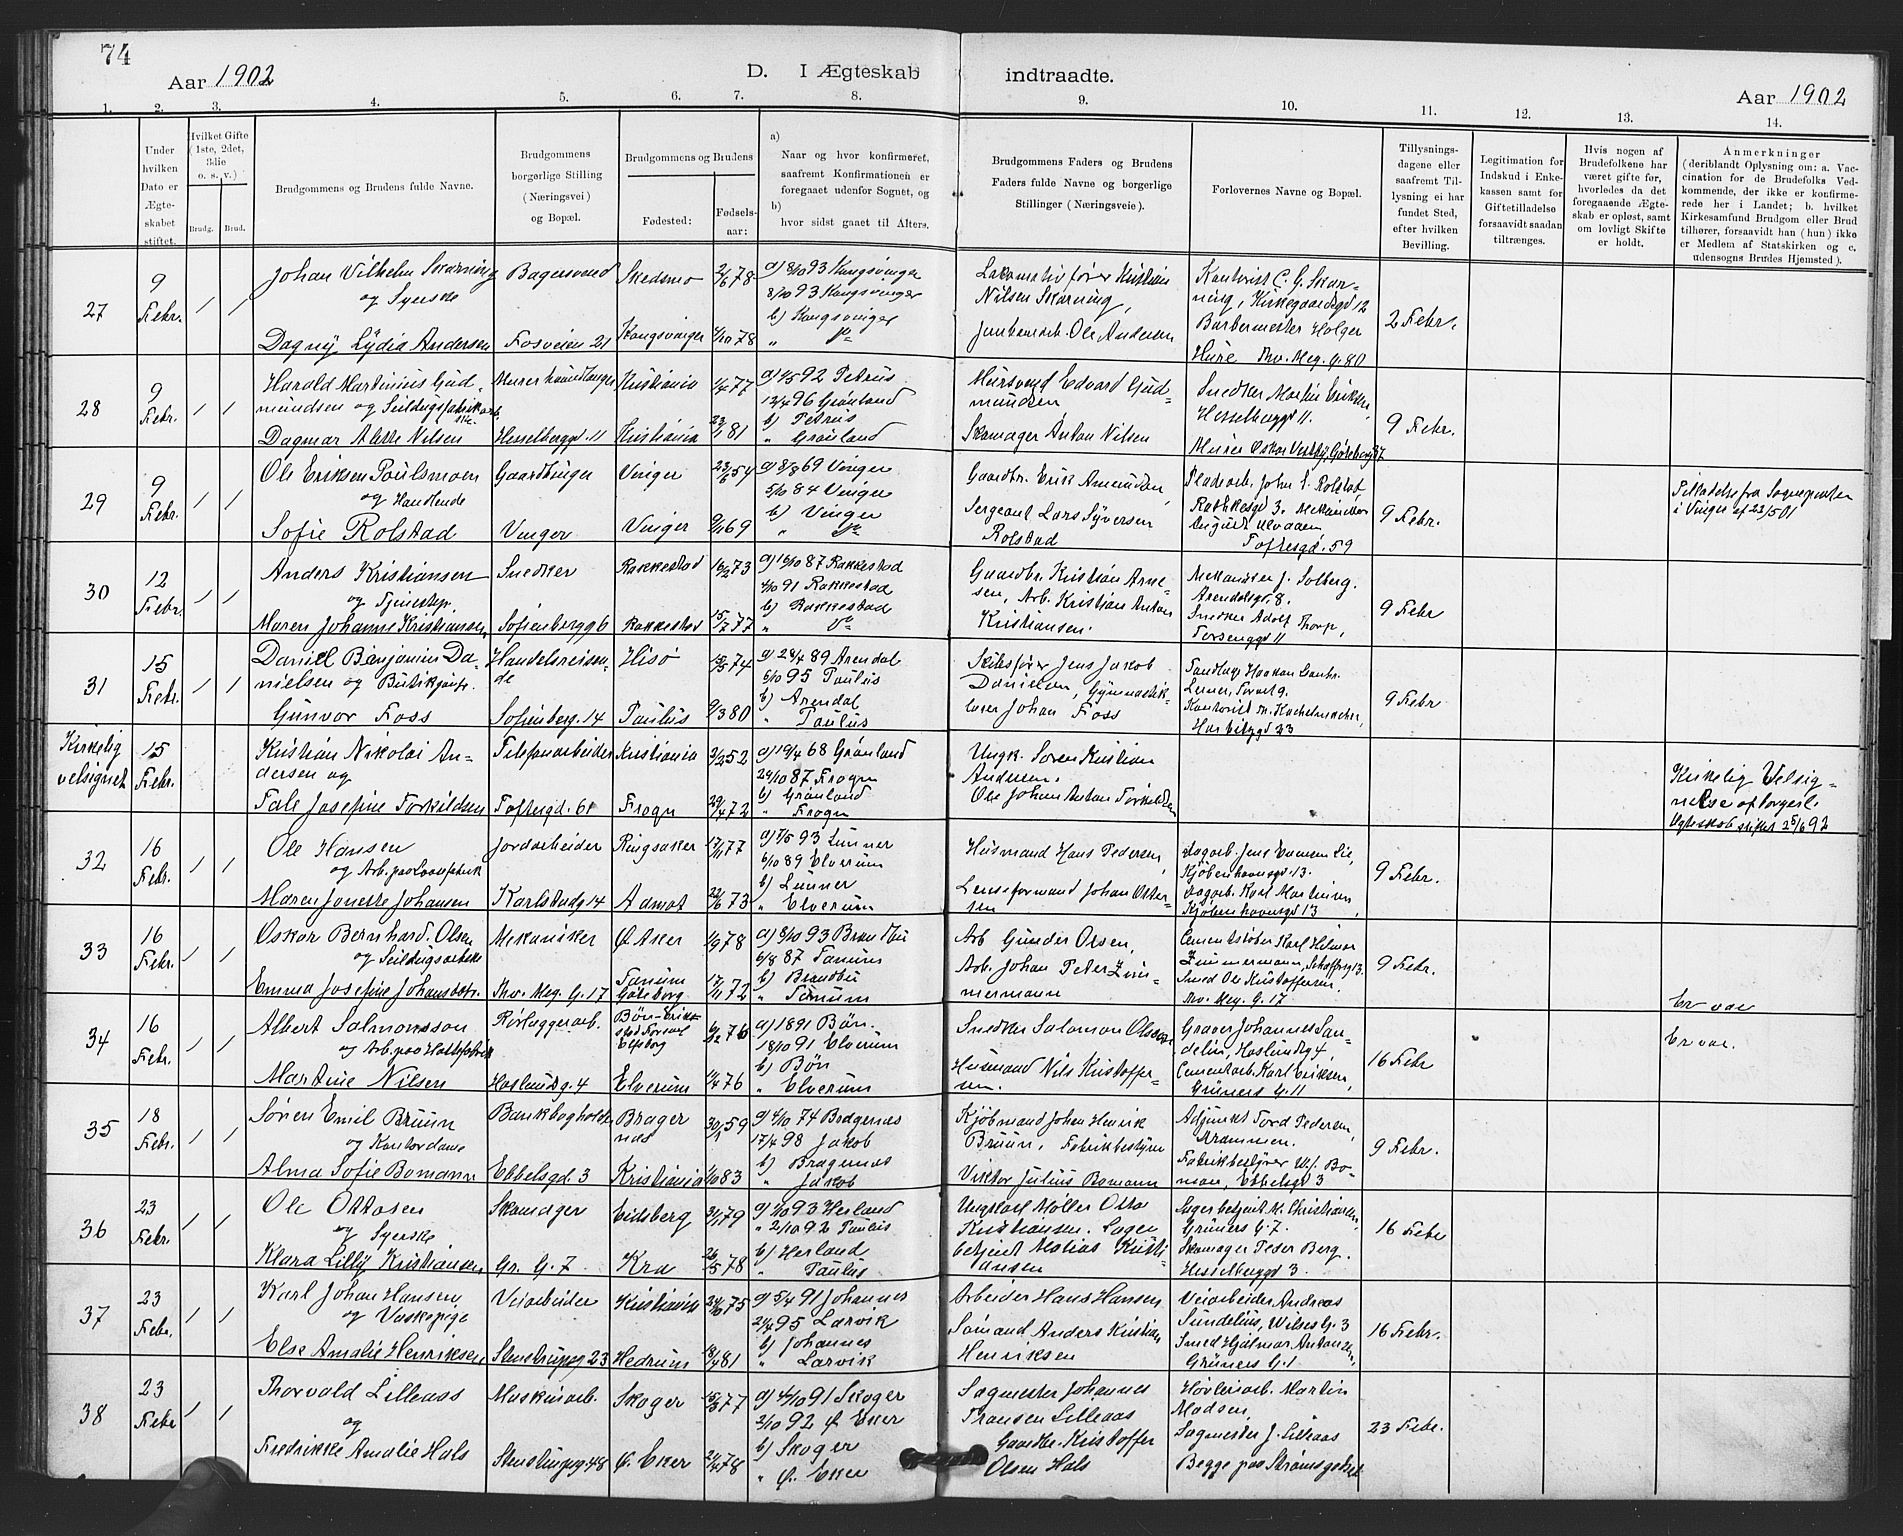 74
Aar 1902
D. I Ægteskab indtraadte.
Aar 1902
1. 2. 3. 4. 5. 6. 7. 8. 9. 10. 11. 12. 13. 14.
Under hvilken Dato er Ægteskabet stiftet.
Hvilket Gifte (1ste, 2det, 3die o. s. v.)
Brudg. Brud.
Brudgommens og Brudens fulde Navne.
Brudgommens borgerlige Stilling (Næringsvei) og Bopæl.
Brudgommens og Brudens
Fødested:
Fødselsaar:
a) Naar og hvor konfirmeret, saafremt Konfirmationen er foregaaet udenfor Sognet, og
b) hvor sidst gaaet til Alters.
Brudgommens Faders og Brudens Faders fulde Navne og borgerlige Stillinger (Næringsveie).
Forlovernes Navne og Bopæl.
Tillysningsdagene eller saafremt Tillysning ei har fundet Sted, efter hvilken Bevilling.
Legitimation for Indskud i Enkekassen samt for Giftetilladelse forsaavidt saadan tiltrænges.
Hvis nogen af Brudefolkene har været gifte før, hvorledes da det foregaaende Ægteskab er opløst, samt om lovligt Skifte er holdt.
Anmerkninger (deriblandt Oplysning om: a. Vaccination for de Brudefolks Vedkommende, der ikke er konfirmerede her i Landet; b. hvilket Kirkesamfund Brudgom eller Brud tilhører, forsaavidt han (hun) ikke er Medlem af Statskirken og c. udensogns Brudes Hjemsted).
27 9 Febr. / / Johan Vilhelm Skarning og Syerske Bagersvend Skedsmo 2/6 78 a) 8/10 93 Kongsvinger
8/10 93 Kongsvinger
b) Kongsvinger
Dagny Lydia Andersen Fosveien 21 Kongsvinger 4/10 78
Lokomotivfører Kristian Nilsen Skarning,
Jernbanearb. Ole Andersen
Kontorist C. G. Skarning, Kirkegaardsgd 12
Barbermester Holger
Thv. Meg. g. 80
2 Febr.
28 9 Febr. / / Harald Martinius Gudmundsen og Seildugsfabrikarb.
Dagmar Alette Nilsen Hesselberggd. 11
Murerhaandlanger Kristiania 1/4 77 a) 1/5 92 Petrus
12/4 96 Grønland
Kristiania 22/1 81 b) Petrus
" Grønland
Mursvend Edvard Gudmundsen
Skomager Anton Nilsen
Snedker Martin Eriksen, Hesselberggd 11.
Murer Oskar Vestby, Gøteborggd 37
9 Febr.
29 9 Febr. / / Ole Eriksen Poulsmoen og Handlende
Sofie Rolstad
Gaardbruger Vinger 23/6 54 a) 8/8 69 Vinger
5/10 84 Vinger
Vinger Vinger 9/11 69 b) Vinger
Gaardbr. Erik Amundsen,
Sergeant Lars Syversen Rolstad
Pladearb. John L. Rolstad
Rathkesgd 3. Mekaniker August
Toftesgd. 59
9 Febr.
Tilladelse fra Sognepresten i Vinger af 23/5 01
30 12 Febr. / / Anders Kristiansen og Tjenestep.
Maren Johanne Kristiansen
Snedker Rakkestad 16/2 73 a) 16/10 87 Rakkestad
4/10 91 Rakkestad
Sofienbergg 6 Rakkestad 15/7 77 b) Rakkestad
Gaardbr. Kristian Arnesen, Arb. Kristian Anton Kristiansen.
Mekaniker J. Solberg. Arendalsgd. 8.
Snedker Adolf Thorp, Torsenggd 11
9 Febr
31 15 Febr. / / Daniel Benjamin Danielsen og Butikjomfr.
Gunvor Foss
Handelsreisende Hisø 13/3 74 a) 28/4 89 Arendal
6/10 95 Paulus
Sofienberg. 14 Paulus 9/3 80 b) Arendal
" Paulus
Skibsfører Jens Jakob Danielsen, Gymnastiklærer Johan Foss
Tandlæge Haakon
Kontorist M.
Harbitzgd 23
9 Febr
Kirkelig velsignet 15 Febr. Kristian Nikolai Andersen og
Tale Josefine Torkildsen
Telefonarbeider Kristiania 3/3 52 a) 19/4 68 Grønland
29/10 87 Frogn
Toftesgd. 61 Frogn 29/4 72 b) Grønland
" Frogn
Ungk. Søren Kristian Andersen.
Ole Johan Anton Torkildsen
Kirkelig Velsignelse af borgerl. Ægteskab stiftet 25/6 92
32 16 Febr. / / Ole Hansen
og Arb. paa
Maren Jonette Johansen
Jordarbeider Ringsaker 17/11 77 a) 7/5 93 Lunner
6/10 89 Elverum
Karlstadg 14 Aamot 22/6 73 b) Lunner
" Elverum
Husmand Hans Pedersen,
Lenseformand Johan Ottersen
Dagarb. Jens Evensen Lie, Kjøbenhavnsgd. 13.
Dagarb. Karl Martinsen, Kjøbenhavnsgd 13
9 Febr.
33 16 Febr. / / Oskar Bernhard Olsen
og Seildugsarbeiderske
Emma Josefine Johansdotr.
Mekaniker Ø Aker 1/9 78 a) 8/10 93 Brandbu
6/8 87 Tanum
Thv. Meg. G. 17 Tanum Göteborg 17/11 72 b) Brandbu
" Tanum
Arb Gunder Olsen,
Arb. Johan Peter Zimmermann
Cementstøber Karl Hilmar Zimmermann,
Smed Ole Kristoffersen. Thv. Meg. G. 17
9 Febr.
Er vac
34 16 Febr. / / Albert Salmonsson
og Arb. paa Hattefabrik
Martine Nilsen
Rørlæggerarb. Bön Elfsborg 6/12 76 a) 1891 Bön.
18/10 91 Elverum
Haslundsg. 4 Elverum 11/4 76 b) Bön
" Elverum
Snedker Salomon Olsson
Husmand Nils Kristoffersen.
Graver Johannes Sandelin, Haslundsg 4,
Cementarb. Karl Eriksen, Grüners G. 11
16 Febr
Er vac.
35 18 Febr. / / Søren Emil Bruun
og Kontordame
Alma Sofie Bomann
Bankbogholder Bragernes 30/1 59 a) 4/10 74 Bragernes
17/4 98 Jakob
Ebbelsgd. 3 Kristiania 1/10 83 b) Bragernes
" Jakob
Kjøbmand Johan Henrik Bruun, Fabrikbestyrer
Viktor Julius Bomann
Adjunkt Tord Pedersen, Drammen.
Fabrikbestyrer W. J. Bomann, Ebbelsgd 3
9 Febr.
36 23 Febr. / / Ole Ottosen
og Syerske
Klara Lilly Kristiansen
Skomager Eidsberg 31/1 79 a) 1/10 93 Herland
" 2/10 92 Paulus
Gr. G. 7 Kra 26/5 78 b) Herland
" Paulus
Ungkarl Møller Otto Kristiansen. Lagerbetjent Matias Kristiansen
Lagerbetjent M. Christiansen, Grüners G. 7.
Skomager Peder Berg. Hesselberggd 3.
16 Febr
37 23 Febr. / / Karl Johan Hansen
og Vaskepige
Else Amalie Henriksen
Veiarbeider Kristiania 24/10 75 a) 5/4 91 Johannes
21/4 95 Larvik
Stenstrupsg 23 Hedrum 18/4 81 b) Johannes
" Larvik
Arbeider Hans Hansen
Sømand Anders Kristian Henriksen
Veiarbeider Andreas Sundelius, Wilses G. 3
Smed Hjalmar Antonsen, Grüners G. 1
16 Febr.
38 23 Febr / / Thorvald Lilleaas
og
Fredrikke Amalie Hals
Maskinarb. Skoger 15/3 77 a) 4/10 91 Skoger
2/10 92 Ø Eker
Stenstrupsg. 48 Ø. Eker 21/4 78 b) Skoger
" Ø. Eker
Sagmester Johannes Fransen Lilleaas
Gaardbr. Kristoffer Olsen Hals
Høvleriarb. Martin Madsen,
Sagmester J. Lilleaas
Begge paa Strømsgodset
23 Febr.